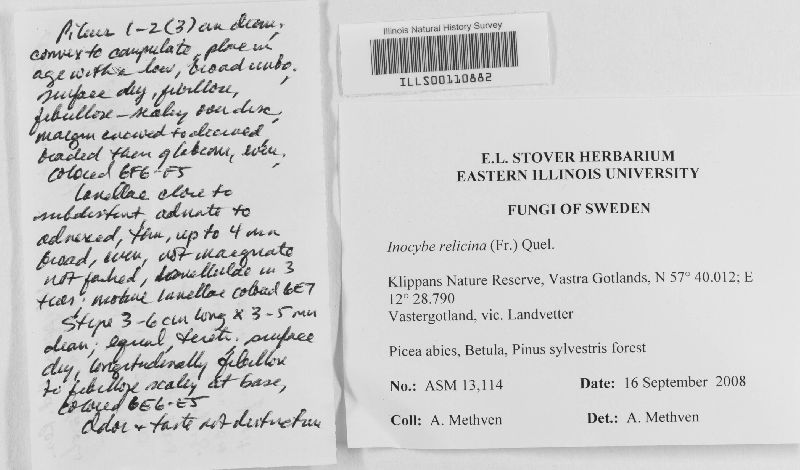 Pileus 1-2 (3) cm diam,
convex to campulate, plane in
age with a low, broad umbo.
surface dry, fibrillose,
fibrillose-scaly over disc,
margin incurved to decurved
then glabrous, even,
colored 6F6-E5
Lamellae close to
subdistant, adnate to
adnexed, thin, up to 4 mm
broad, even, not marginate
not forked, lamellulae in 3
tiers; mature lamellae colored 6E7
Stipe 3-6 cm long x 3-5 mm
diam, equal, terete, surface
dry, longitudinally fibrillose
to fibrillose scaly at base,
colored 6E6-E5
Odor + taste not distinctive
Illinois Natural History Survey
ILLS00110882
E.L. STOVER HERBARIUM
EASTERN ILLINOIS UNIVERSITY
FUNGI OF SWEDEN
Inocybe relicina (Fr.) Quel.
Klippans Nature Reserve, Vastra Gotlands, N 57° 40.012; E
12° 28.790
Vastergotland, vic. Landvetter
Picea abies, Betula, Pinus sylvestris forest
No.: ASM 13,114 Date: 16 September 2008
Coll: A. Methven Det.: A. Methven